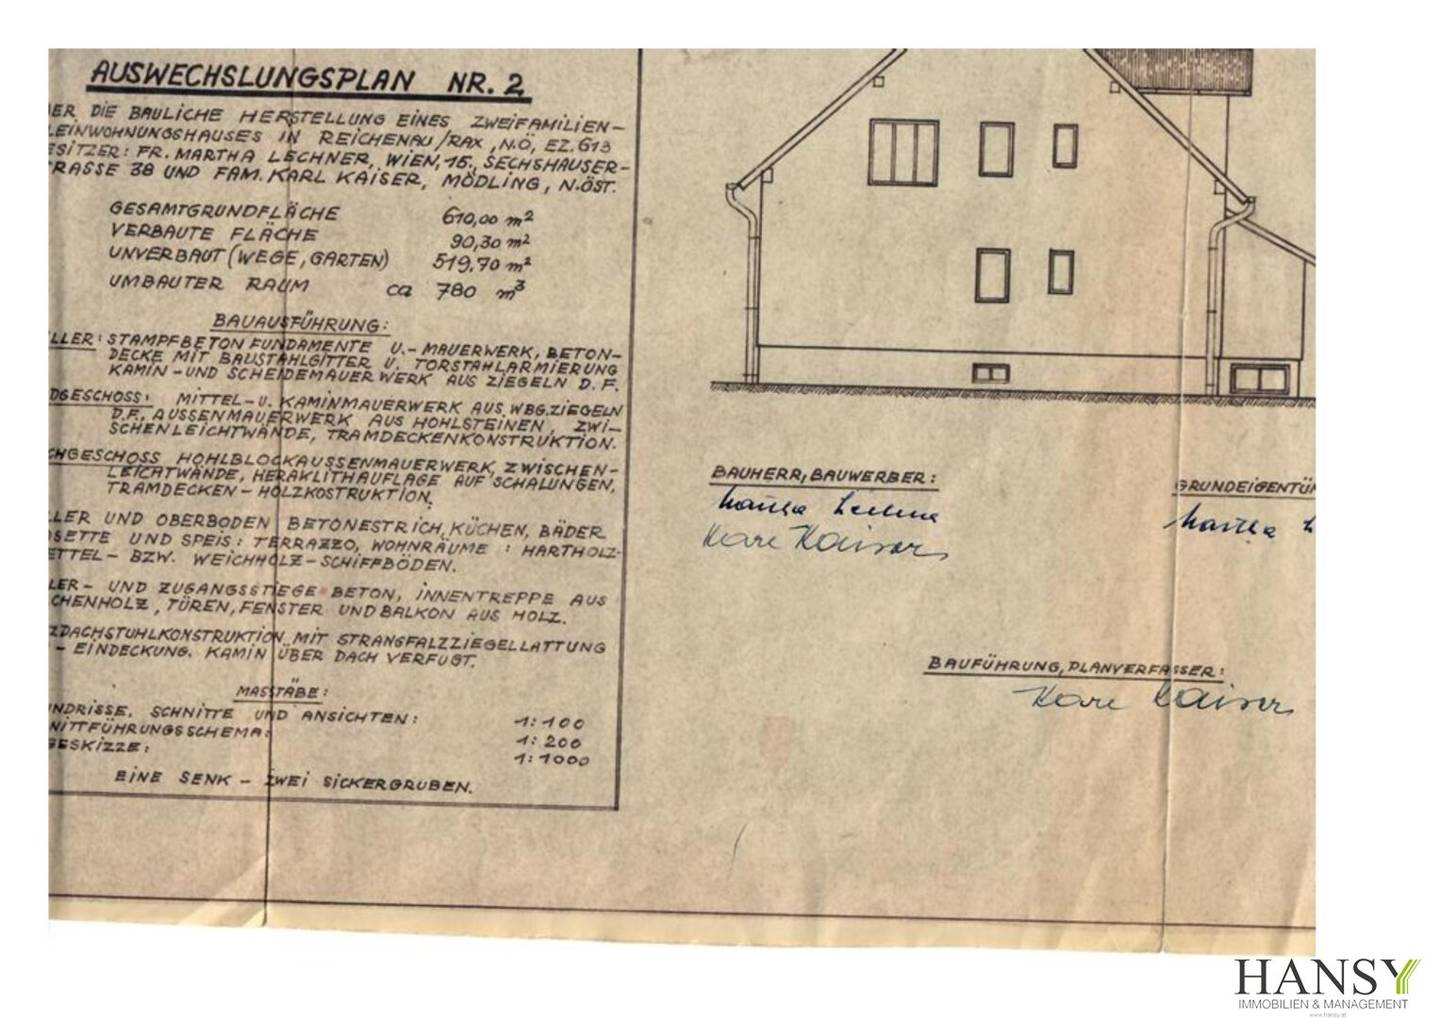 AUSWECHSLUNGSPLAN NR. 2
ER DIE BAULICHE HERSTELLUNG EINES ZWEIFAMILIEN-
LEINWOHNUNGSHAUSES IN REICHENAU/RAX, N.Ö, EZ. 613
ESITZER: FR. MARTHA LECHNER, WIEN, 15., SECHSHAUSER-
RASSE 38 UND FAM. KARL KAISER, MÖDLING, N.ÖST.
GESAMTGRUNDFLÄCHE 610,00 m²
VERBAUTE FLÄCHE 90,30 m²
UNVERBAUT (WEGE, GARTEN) 519,70 m²
UMBAUTER RAUM ca 780 m³
BAUAUSFÜHRUNG:
LLER: STAMPFBETON FUNDAMENTE U.- MAUERWERK, BETON-
DECKE MIT BAUSTAHLGITTER U. TORSTAHLARMIERUNG
KAMIN-UND SCHEIDEMAUERWERK AUS ZIEGELN D.F.
DGESCHOSS: MITTEL-U. KAMINMAUERWERK AUS WBG.ZIEGELN
D.F., AUSSENMAUERWERK AUS HOHLSTEINEN, ZWI-
SCHENLEICHTWÄNDE, TRAMDECKENKONSTRUKTION.
CHGESCHOSS HOHLBLOCKAUSSENMAUERWERK, ZWISCHEN-
LEICHTWÄNDE, HERAKLITHAUFLAGE AUF SCHALUNGEN,
TRAMDECKEN-HOLZKOSTRUKTION.
LLER UND OBERBODEN BETONESTRICH, KÜCHEN, BÄDER
OSETTE UND SPEIS: TERRAZZO, WOHNRÄUME: HARTHOLZ-
ETTEL- BZW. WEICHHOLZ-SCHIFFBÖDEN.
LER- UND ZUGANGSSTIEGE BETON, INNENTREPPE AUS
CHENHOLZ, TÜREN, FENSTER UND BALKON AUS HOLZ.
ZDACHSTUHLKONSTRUKTION MIT STRANGFALZZIEGELLATTUNG
- EINDECKUNG. KAMIN ÜBER DACH VERFUGT.
MASSTÄBE:
NDRISSE, SCHNITTE UND ANSICHTEN: 1:100
NITTFÜHRUNGSSCHEMA: 1:200
GESKIZZE: 1:1000
EINE SENK - ZWEI SICKERGRUBEN.
BAUHERR, BAUWERBER:
Martha Lechner
Karl Kaiser
GRUNDEIGENTÜM
Martha L
BAUFÜHRUNG, PLANVERFASSER:
Karl Kaiser
HANSY
IMMOBILIEN & MANAGEMENT
www.hansy.at